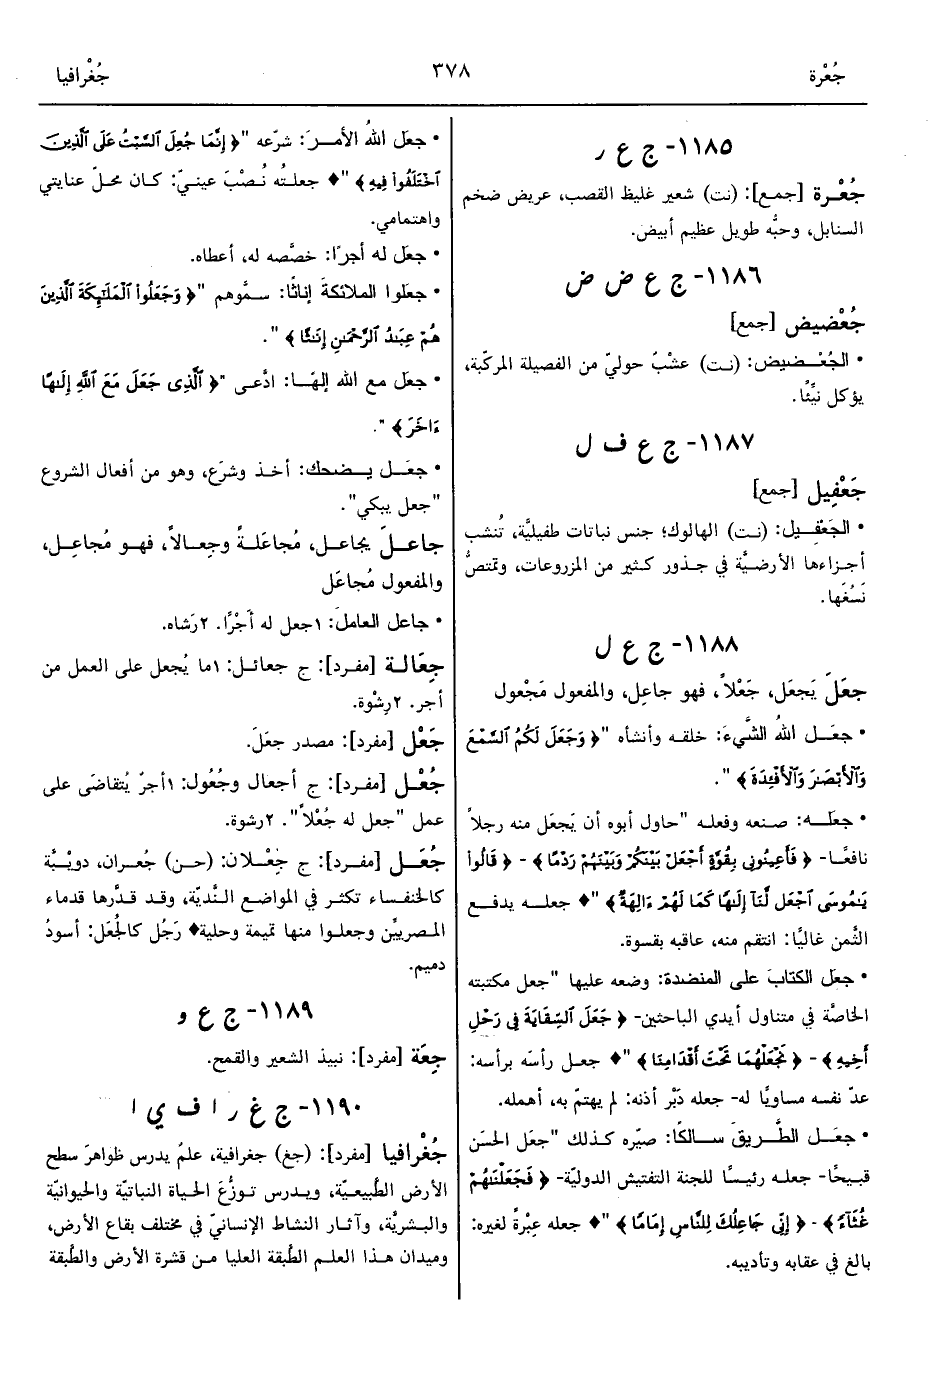 جُعْرة
٣٧٨
جُغْرافيا
١١٨٥- ج ع ر
جُعْـرة [جمـع]: (نت) شعير غليظ القصب، عريض ضخم
السنابل، وحبُّه طويل عظيم أبيض.
١١٨٦- ج ع ض ض
جُعْضيض [جمع]
• الجُعْـضيض: (نـت) عشْبٌ حوليّ من الفصيلة المركّبة،
يؤكل نيِّئًا.
١١٨٧- ج ع ف ل
جَعْفِيل [جمع]
• الجَعْفِيل: (نـت) الهالوك؛ جنس نباتات طفيليَّة، تُنشب
أجـزاءها الأرضيَّة في جذور كثير من المزروعات، وتمتصُّ
نَسْغَها.
١١٨٨- ج ع ل
جعَلَ يَجعَل، جَعْلاً، فهو جاعِل، والمفعول مَجْعول
• جعَـل اللهُ الشَّيءَ: خلقـه وأنشأه "﴿ وَجَعَلَ لَكُمُ ٱلسَّمْعَ
وَٱلْأَبْصَٰرَ وَٱلْأَفْـِٔدَةَ ﴾ ".
• جعلـه: صـنعه وفعلـه "حاول أبوه أن يَجعَل منه رجلاً
نافعًـا- ﴿ فَأَعِينُونِى بِقُوَّةٍ أَجْعَلْ بَيْنَكُمْ وَبَيْنَهُمْ رَدْمًا ﴾- ﴿ قَالُوا۟
يَٰمُوسَى ٱجْعَل لَّنَآ إِلَٰهًا كَمَا لَهُمْ ءَالِهَةٌ ﴾ "♦ جعلـه يدفـع
الثّمن غاليًـا: انتقم منه، عاقبه بقسوة.
• جعَل الكتابَ على المنضدة: وضعه عليها "جعل مكتبته
الخاصَّة في متناول أيدي الباحثين- ﴿ جَعَلَ ٱلسِّقَايَةَ فِى رَحْلِ
أَخِيهِ ﴾- ﴿ نَجْعَلْهُمَا تَحْتَ أَقْدَامِنَا ﴾ "♦ جعـل رأسَه برأسه:
عدّ نفسه مساويًا له- جعله دَبْر أذنه: لم يهتمّ به، أهمله.
• جعَـل الطَّـريقَ سـالكًا: صيّره كـذلك "جعَل الحَسَن
قبيحًا- جعلـه رئيسًـا للجنة التفتيش الدوليَّة- ﴿ فَجَعَلْنَٰهُمْ
غُثَآءً ﴾- ﴿ إِنِّى جَاعِلُكَ لِلنَّاسِ إِمَامًا ﴾ "♦ جعله عِبْرةً لغيره:
بالغ في عقابه وتأديبه.
• جعَل اللهُ الأمـرَ: شرّعه "﴿ إِنَّمَا جُعِلَ ٱلسَّبْتُ عَلَى ٱلَّذِينَ
ٱخْتَلَفُوا۟ فِيهِ ﴾ "♦ جعلـتُه نُصْبَ عينيّ: كـان محـلّ عنايتي
واهتمامي.
• جعَل له أجرًا: خصَّصه له، أعطاه.
• جعلـوا الملائكةَ إناثًـا: سـمَّوهم "﴿ وَجَعَلُوا۟ ٱلْمَلَٰٓئِكَةَ ٱلَّذِينَ
هُمْ عِبَٰدُ ٱلرَّحْمَٰنِ إِنَٰثًا ﴾ ".
• جعَل مـع الله إلهًـا: ادَّعى "﴿ ٱلَّذِى جَعَلَ مَعَ ٱللَّهِ إِلَٰهًا
ءَاخَرَ ﴾ ".
• جعَـل يـضحك: أخـذ وشرَع، وهو من أفعال الشروع
"جعل يبكي".
جاعـلَ يجاعـل، مُجاعَلـةً وجِعـالاً، فهـو مُجاعِـل،
والمفعول مُجاعَل
• جاعل العاملَ: ١جعل له أجْرًا. ٢رَشاه.
جِعَالـة [مفـرد]: ج جعائـل: ١ما يُجعل على العمل من
أجر. ٢رِشْوة.
جَعْل [مفرد]: مصدر جعَلَ.
جُعْـل [مفـرد]: ج أجعال وجُعُول: ١أجرٌ يُتقاضَى على
عمل "جعل له جُعْلاً". ٢رشوة.
جُعَـل [مفـرد]: ج جِعْـلان: (حـن) جُعـران، دويْبَّة
كالخنفـساء تكثـر في المواضـع النَّـديّة، وقـد قـدَّرها قدماء
المـصريِّين وجعلـوا منها تميمة وحلية♦ رَجُل كالجُعَل: أسودُ
دميم.
١١٨٩- ج ع و
جِعَة [مفرد]: نبيذ الشعير والقمح.
١١٩٠- ج غ ر ا ف ي ا
جُغْرافيا [مفرد]: (جغ) جغرافية، علمٌ يدرس ظواهرَ سطح
الأرض الطَّبيعـيَّة، ويـدرس تـوزُّعَ الحـياة النباتيَّة والحيوانيَّة
والبـشريَّة، وآثـار النشاط الإنسانيّ في مختلف بقاع الأرض،
وميدان هـذا العلـم الطَّبقة العليا مـن قشرة الأرض والطَّبقة